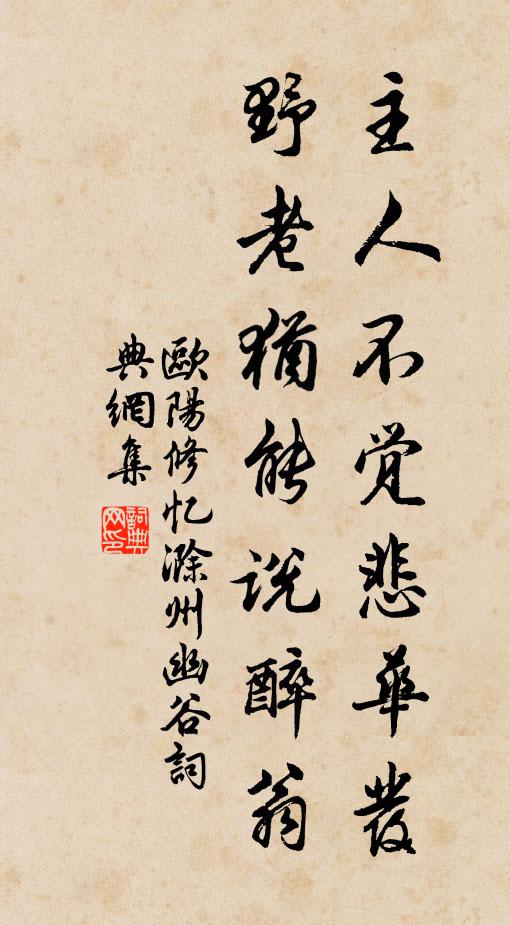 主人不觉悲華發
野老猶能説醉翁
歐陽修忆滁州幽谷詞
典網集
詞典网印